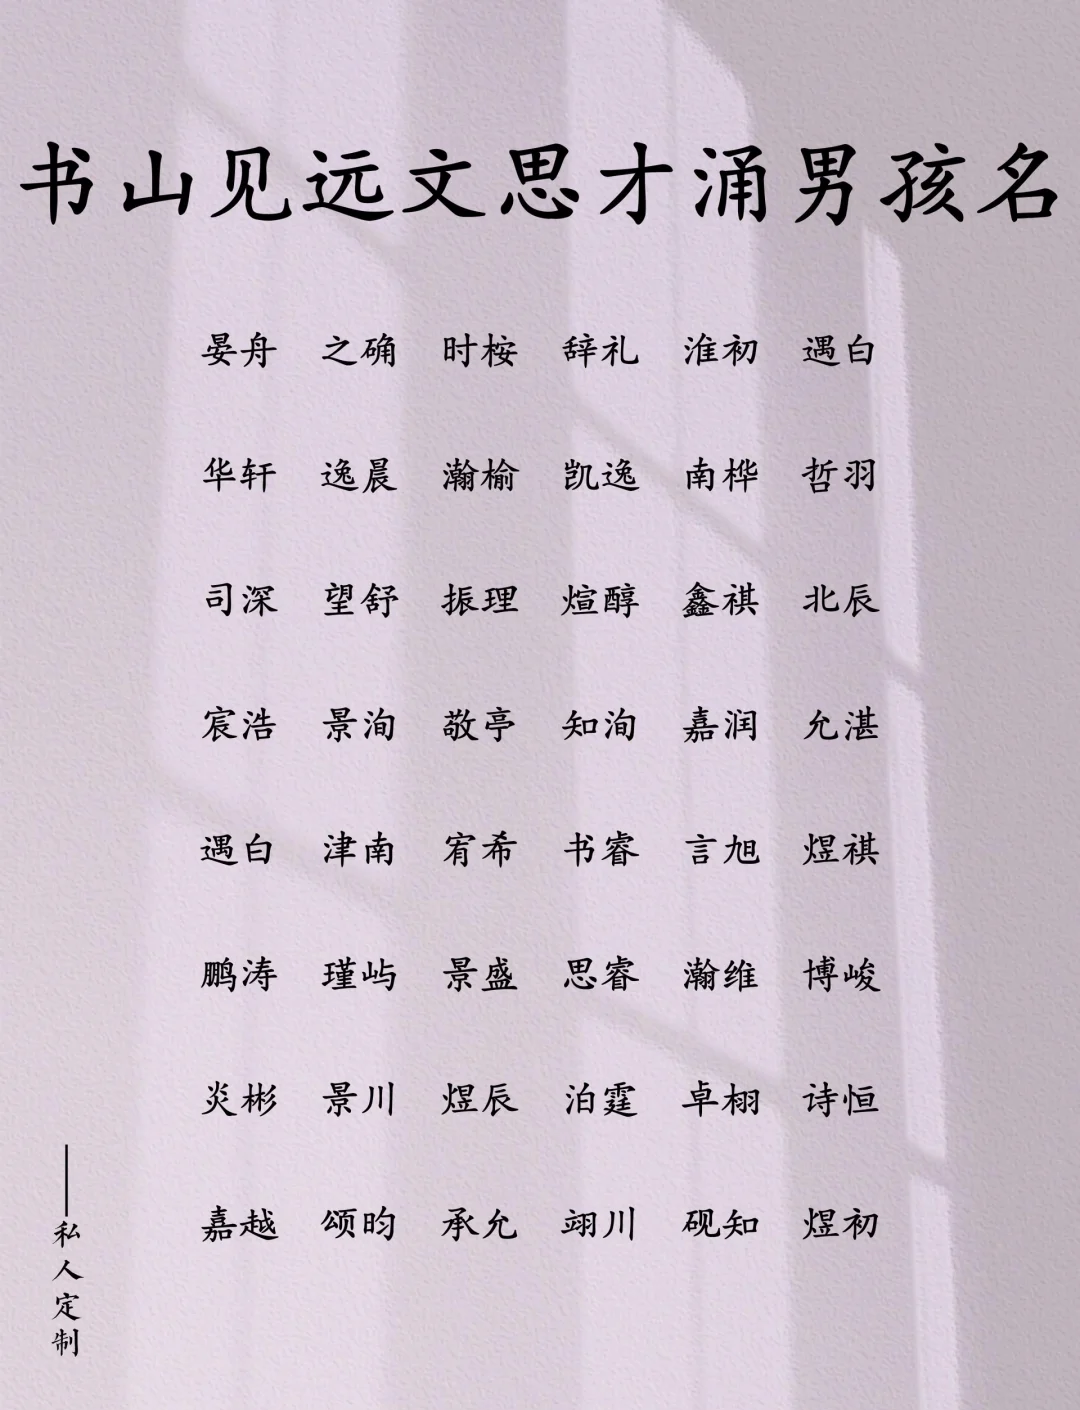 书山见远文思才涌男孩名
晏舟 之确 时桉 辞礼 淮初 遇白
华轩 逸晨 瀚榆 凯逸 南桦 哲羽
司深 望舒 振理 煊醇 鑫祺 北辰
宸浩 景洵 敬亭 知洵 嘉润 允湛
遇白 津南 宥希 书睿 言旭 煜祺
鹏涛 瑾屿 景盛 思睿 瀚维 博峻
炎彬 景川 煜辰 泊霆 卓栩 诗恒
嘉越 颂昀 承允 翊川 砚知 煜初
——私人定制